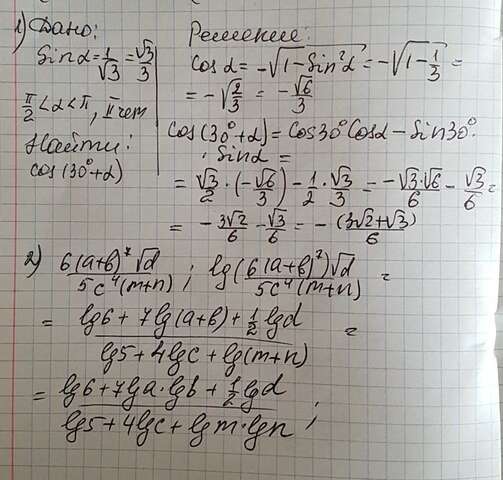 1) Дано:
Sin α = 1/√3 = √3/3
π/2 < α < π, II чет
Найти:
cos(30° + α)
Решение:
Cos α = -√(1 - Sin²α) = -√(1 - 1/3) =
= -√(2/3) = -√6/3
Cos(30° + α) = Cos30° Cosα - Sin30° ·
· Sinα =
= √3/2 · (-√6/3) - 1/2 · √3/3 = -√3·√6/6 - √3/6 =
= -3√2/6 - √3/6 = -(3√2+√3)/6
2) 6(a+b)⁷√d / 5c⁴(m+n) ; lg(6(a+b)⁷)√d / 5c⁴(m+n) =
= lg6 + 7lg(a+b) + 1/2 lgd / lg5 + 4lgc + lg(m+n) =
= lg6 + 7lga·lgb + 1/2 lgd / lg5 + 4lgc + lgm·lgn ;